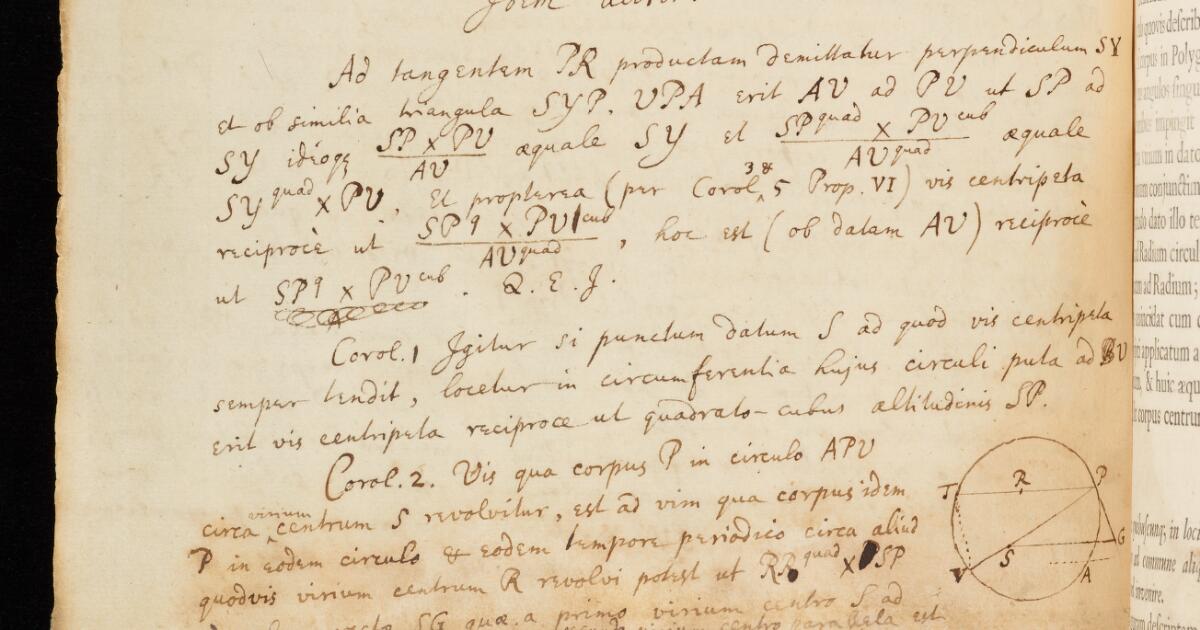 Idem aliter.
Ad tangentem PR productam demittatur perpendiculum SY
et ob similia triangula SYP. VPA erit AV ad PV ut SP ad
SY ideoqꝫ SP × PV / AV æquale SY et SPquad × PVcub / AVquad æquale
SYquad × PV. Et propterea (per Corol 3 & 5 Prop. VI) vis centripeta
reciprocè ut SPq × PVcub / AVquad, hoc est (ob datam AV) reciprocè
ut SPq × PVcub. Q. E. J.
Corol. 1 Igitur si punctum datum S ad quod vis centripeta
semper tendit, locetur in circumferentia hujus circuli puta ad V
erit vis centripeta reciproce ut quadrato-cubus altitudinis SP.
Corol. 2. Vis qua corpus P in circulo APV
circa virium centrum S revolvitur, est ad vim qua corpus idem
P in eodem circulo & eodem tempore periodico circa aliud
quodvis virium centrum R revolvi potest ut RPquad × SP
SG quæ a primo virium centro S ad
virium centro parallela est
T
R
P
S
G
V
A
quovis describ
corpus in Polyg
angulos singu
impingit
unum in dato
conjunctim
dato illo te
Radium circuli
ad Radium;
incidat cum c
applicatum a
& huic æqu
corpus centrum
in loci
commune aliq
invenire.